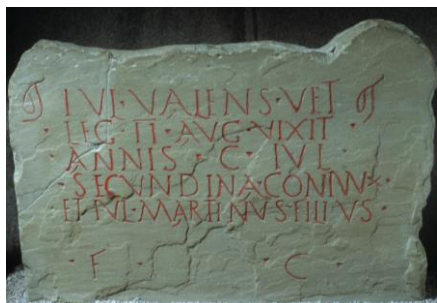 IVL·VALENS·VET
·LEG·II·AVG·VIXIT
·ANNIS·C·IVL·
·SECVNDINA CONIVNX·
ET IVL·MARTINVS·FILIVS·
·F·C·